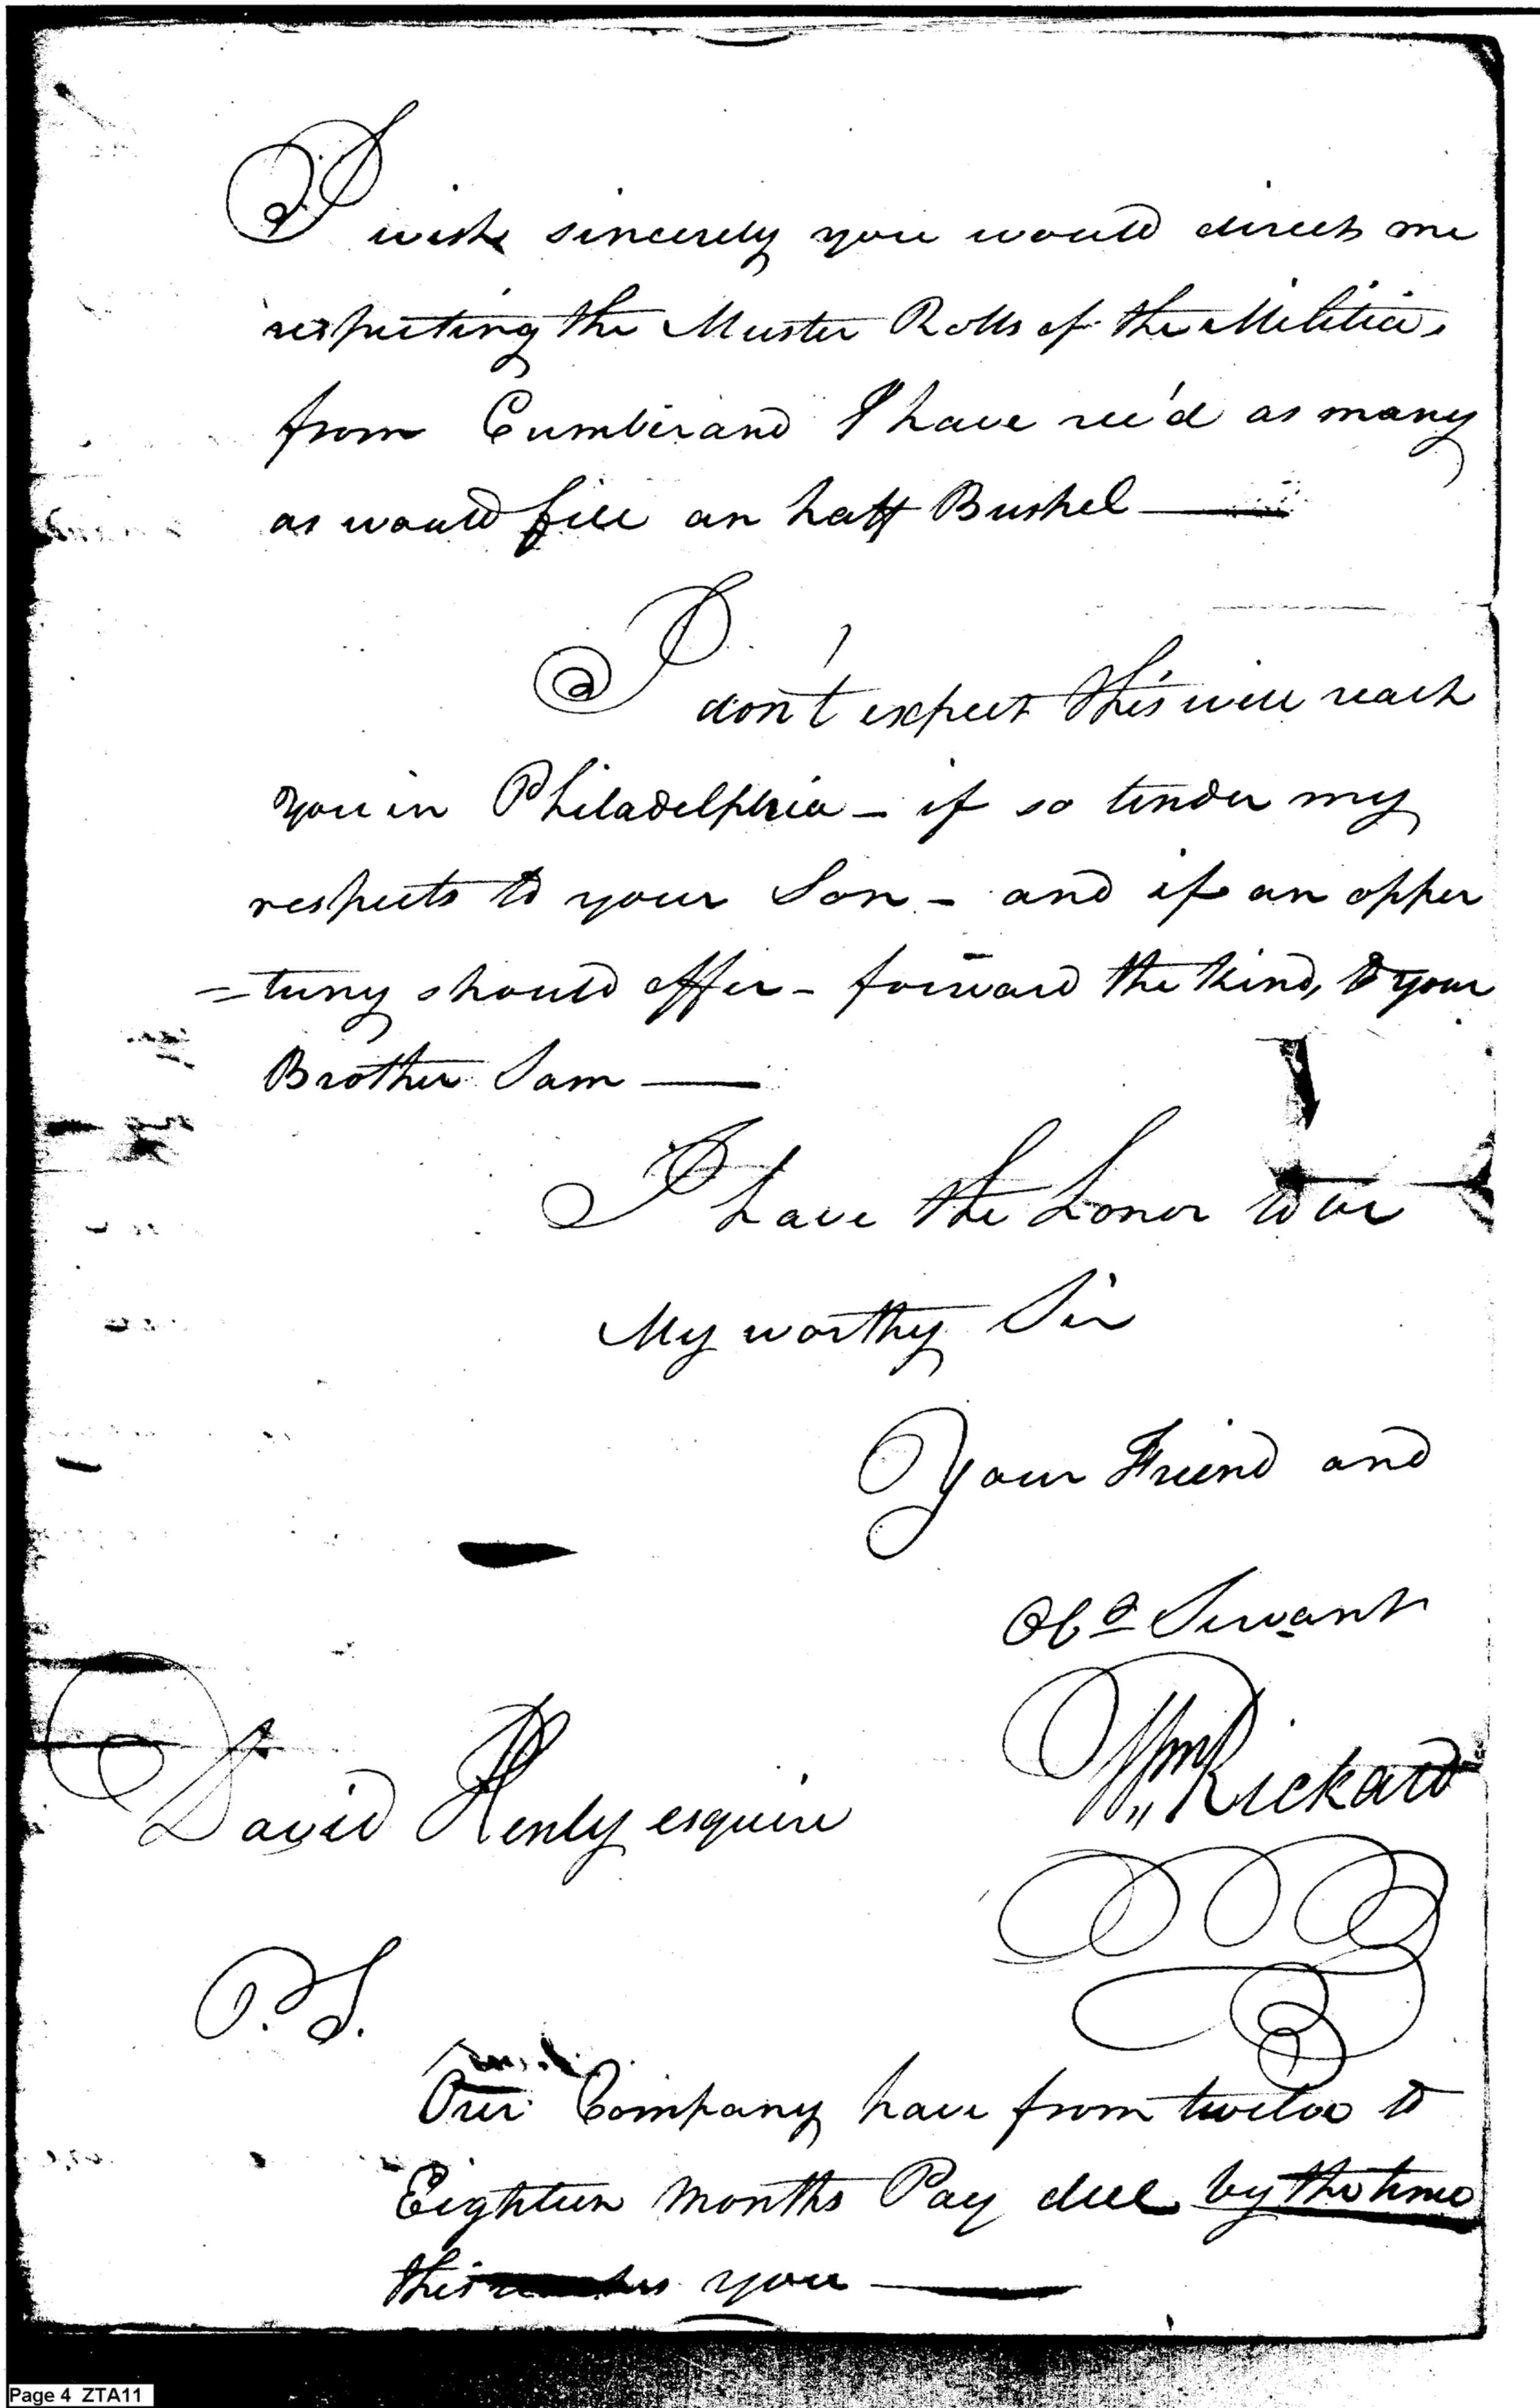 I wish sincerely you would direct me
respecting the Muster Rolls of the Militia
from Cumberand I have rec'd as many
as would fill an half Bushel
I don't expect this will reach
you in Philadelphia - if so tender my
respects to your Son - and if an opper
=tuny should offer - forward the kind, to your
Brother Sam
I have the honor to be
My worthy Sir
Your Friend and
Obt Servant
Wm Rickard
David Henly esquire
P.S.
Our Company have from twelve to
Eighteen Months Pay due by the time
this you
Page 4 ZTA11